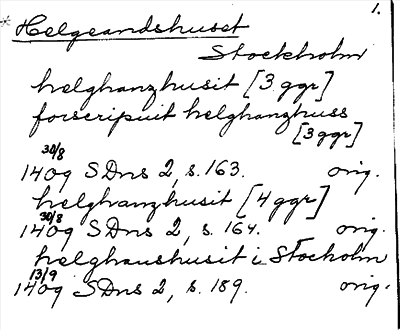 1.
* Helgeandshuset
Stockholm
helghanzhusit [3 ggr]
forscripuit helghanzhuss
[3 ggr]
30/8
1409 SDns 2, s. 163. orig.
helghanzhusit [4 ggr]
30/8
1409 SDns 2, s. 164. orig.
helghanshusit i Stocholm
13/9
1409 SDns 2, s. 189. orig.